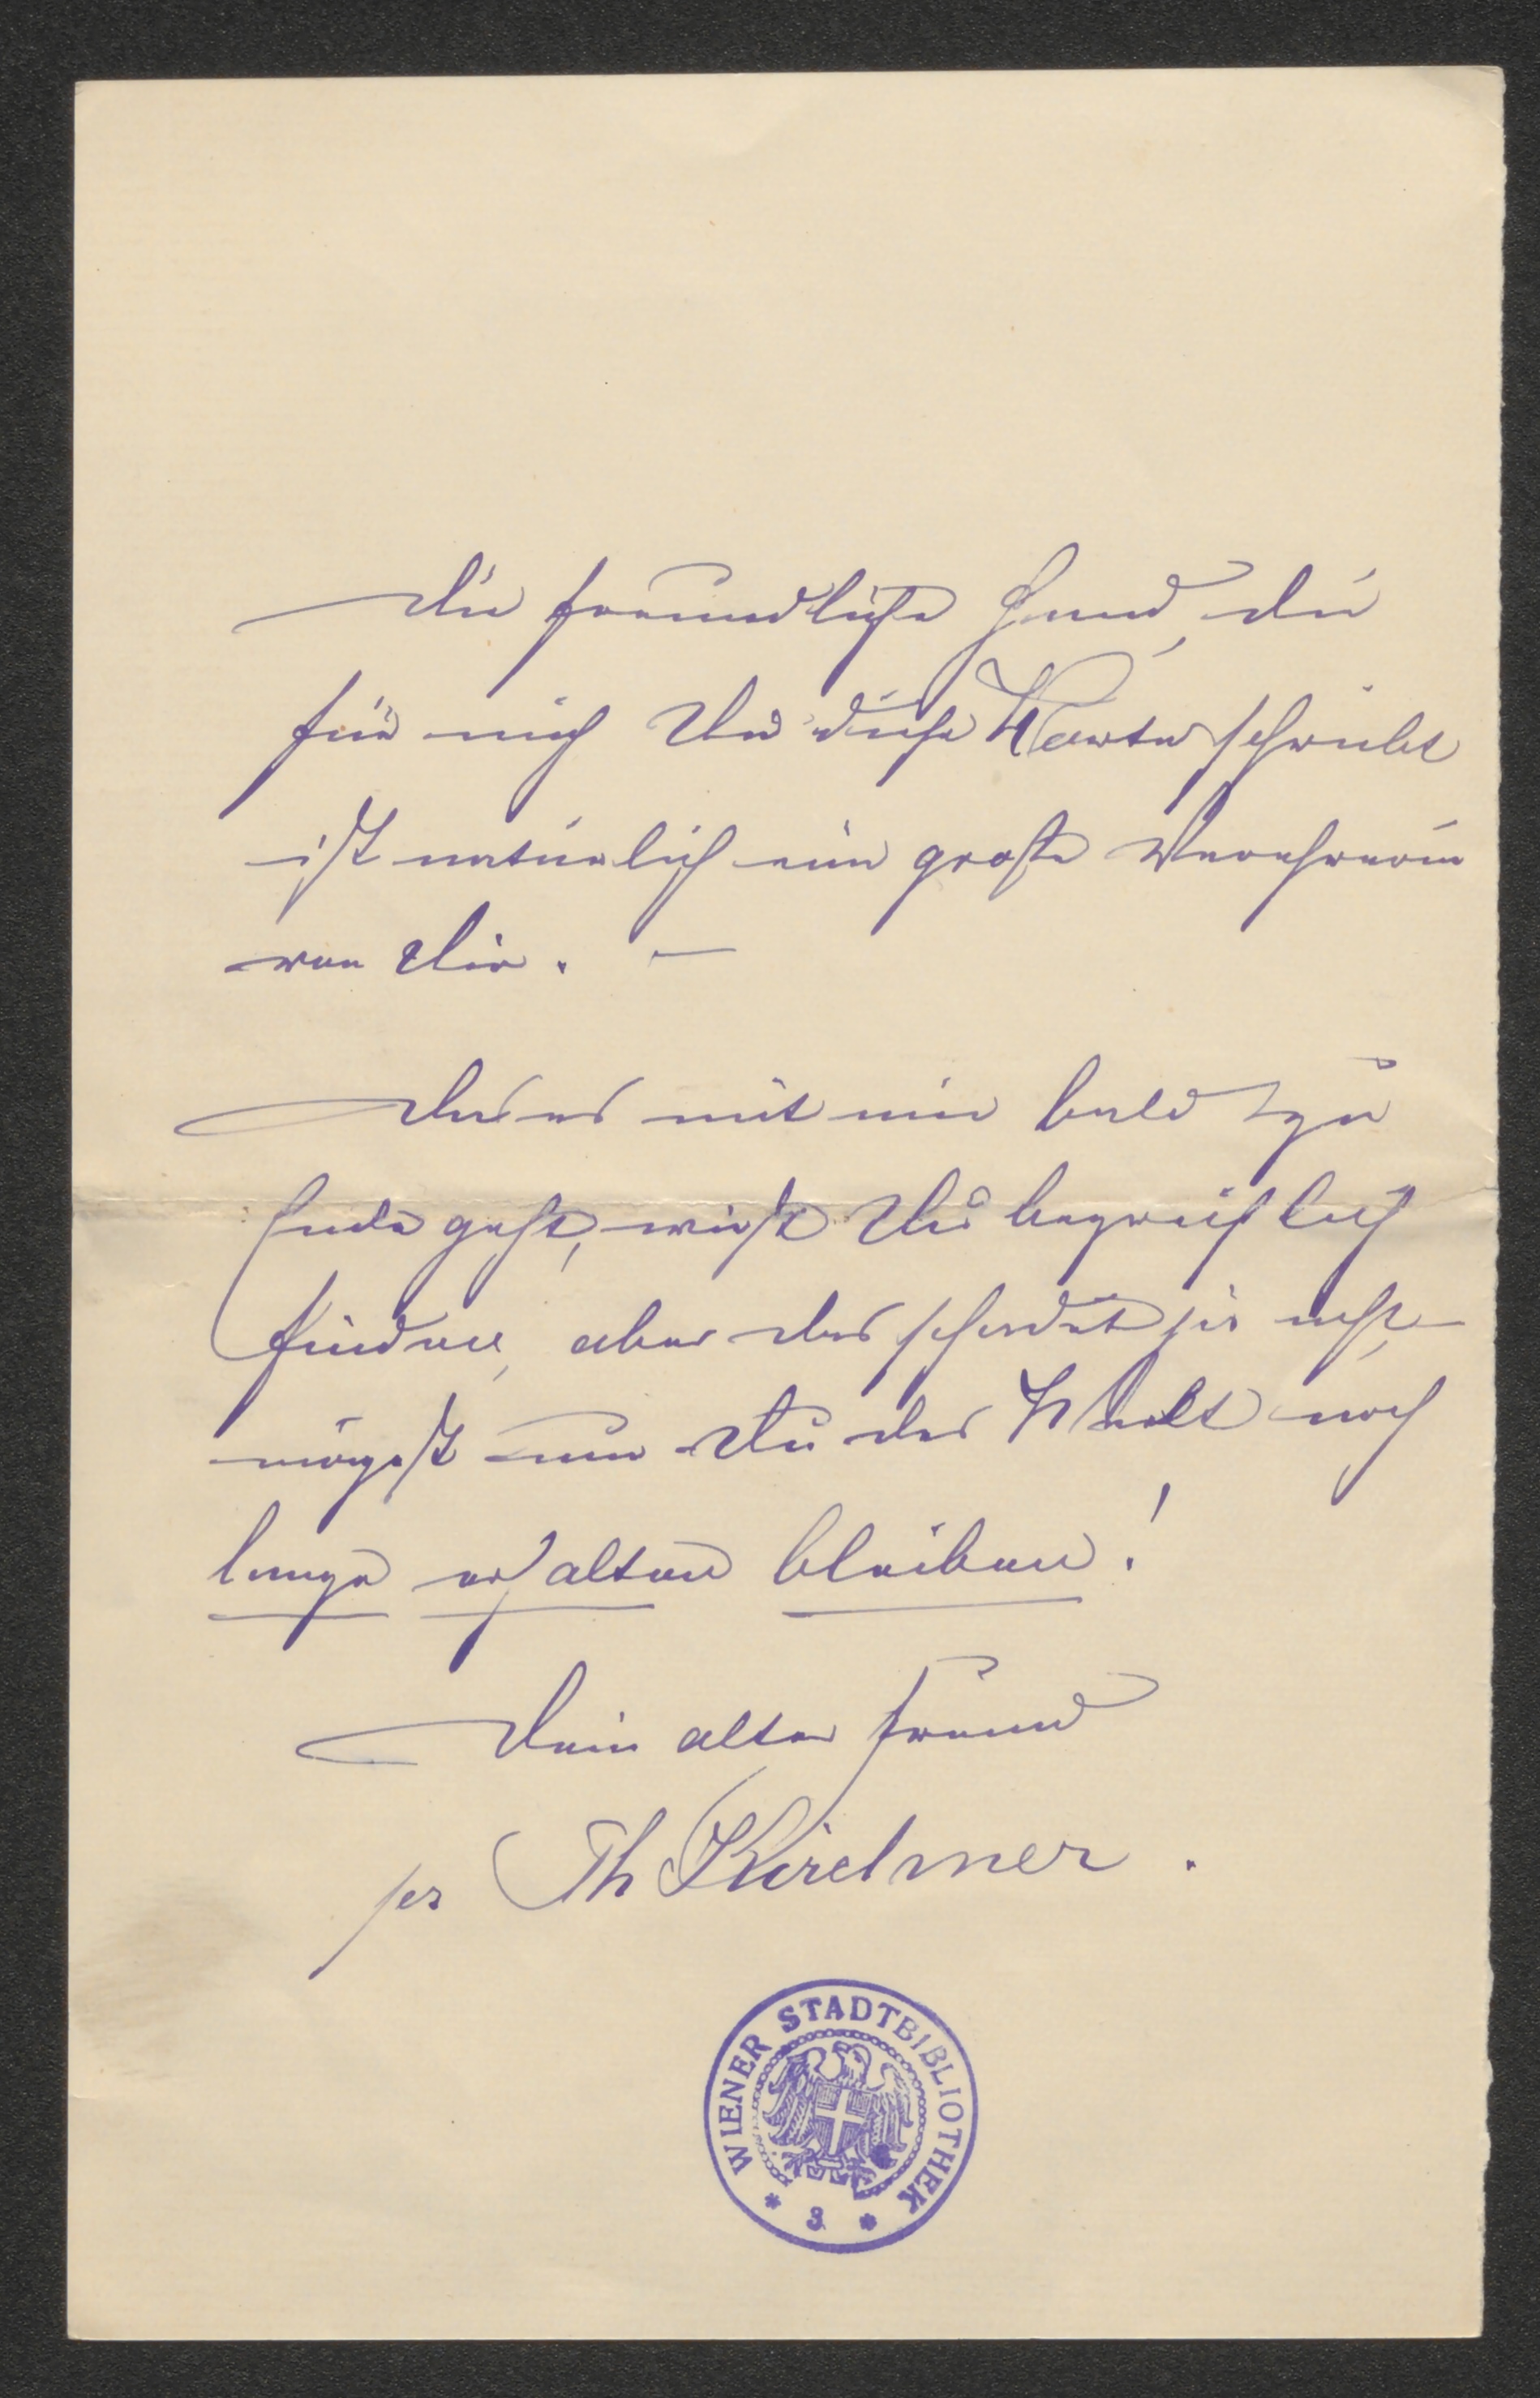 Die freundliche Hand, die
für mich Dir diese Worte schreibt
ist natürlich eine große Verehrerin
von Dir. —
Daß es mit mir bald zu
Ende geht, wirst Du begreiflich
finden, aber das schadet ja nichts,
mögest nur Du der Welt noch
lange erhalten bleiben!
Dein alter Freund
per Th Kirchner.
WIENER STADTBIBLIOTHEK
* 3 *